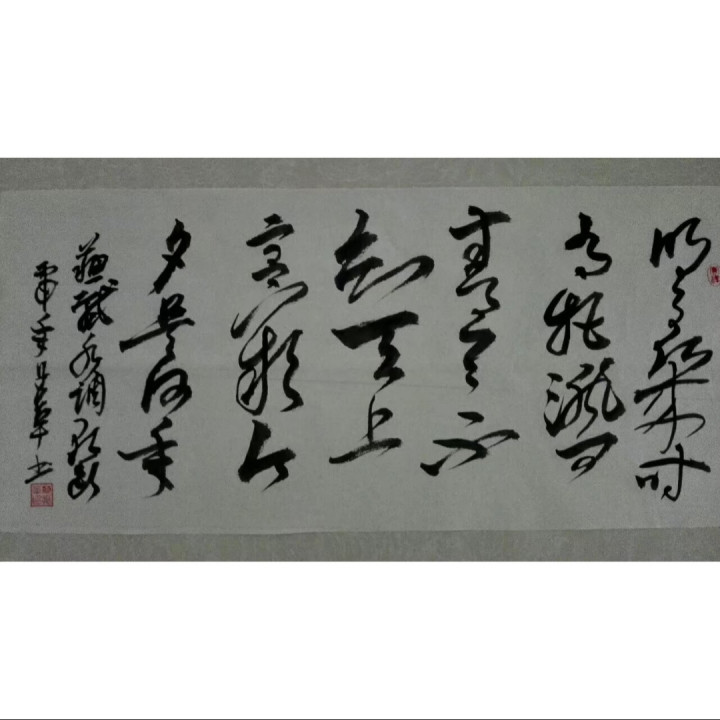 明月幾时
有把酒问
青天不
知天上
宫阙今
夕是何年
蘇軾水调歌头
书